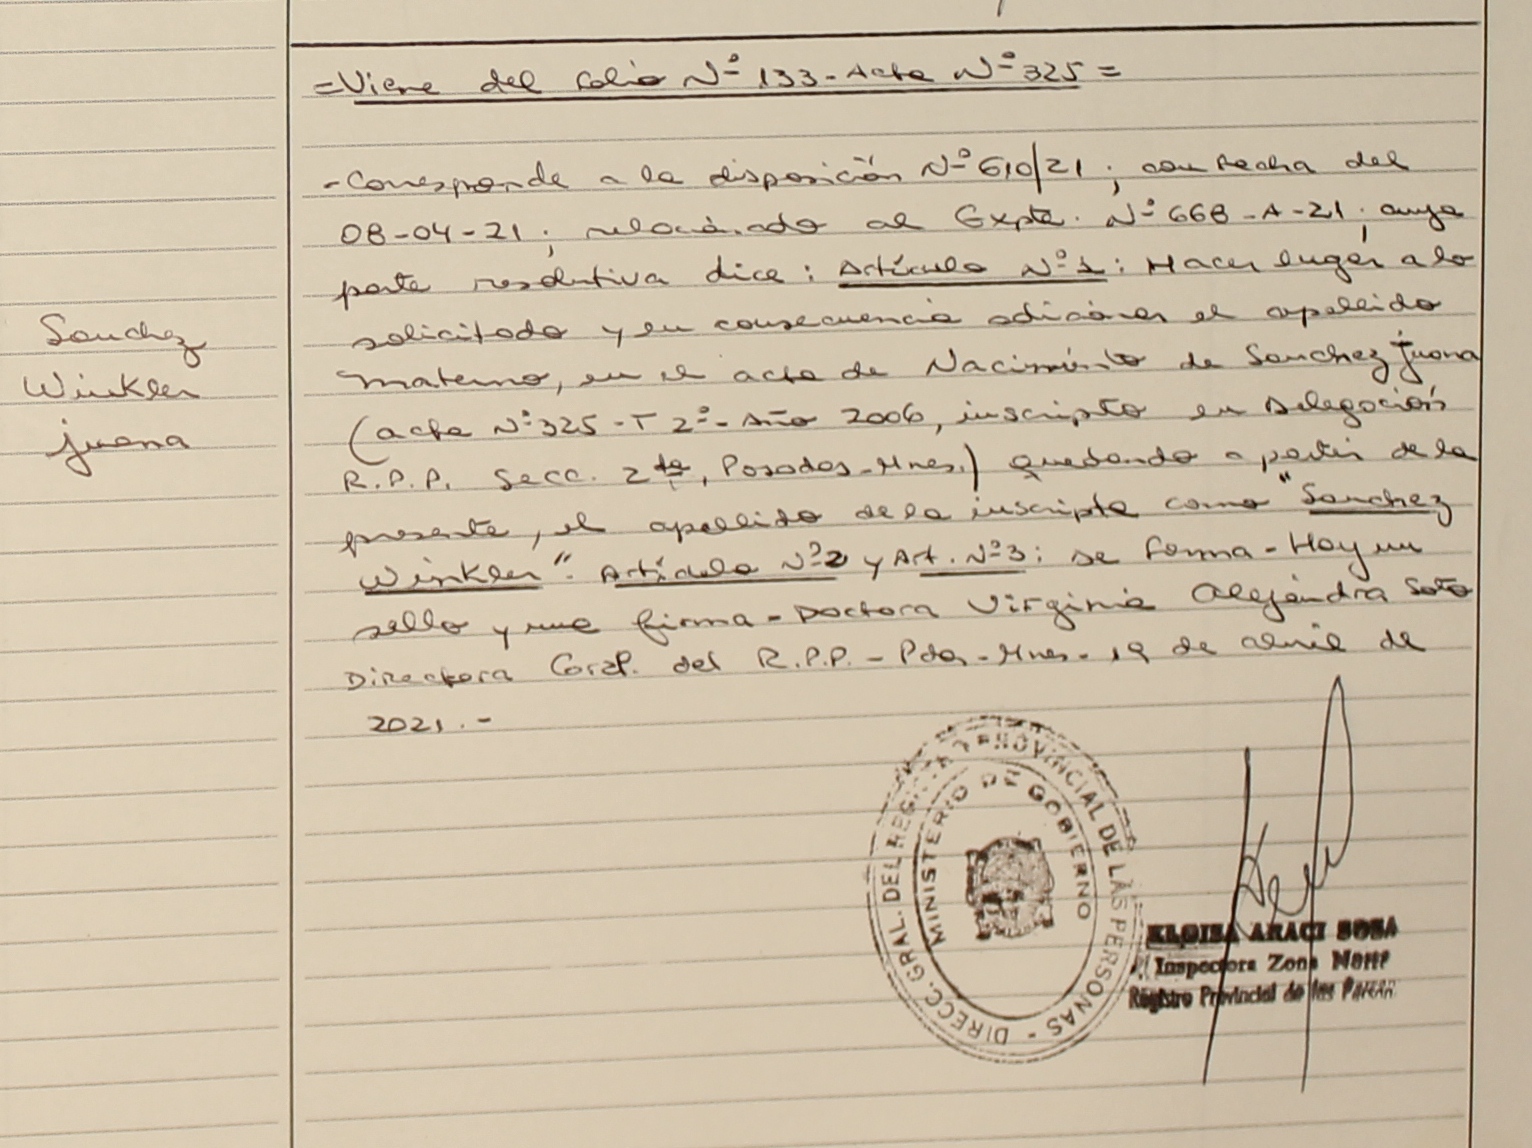 =Viene del folio Nº 133-Acta Nº 325=
-Corresponde a la disposición Nº 610/21; con fecha del
08-04-21; relacionado al Expte. Nº 668-A-21, cuya
parte resolutiva dice: Artículo Nº 1: Hacer lugar a lo
solicitado y en consecuencia adicionar el apellido
materno, en el acta de Nacimiento de Sanchez Juana
(acta Nº 325-T 2º-Año 2006, inscripto en Delegación
R.P.P. Secc. 2da, Posadas-Mnes.) quedando a partir de la
presente, el apellido de la inscripta como "Sanchez
Winkler". Artículo Nº2 y Art. Nº3: de forma-Hay un
sello y una firma-Doctora Virginia Alejandra Soto
Directora Gral. del R.P.P.-Pdas-Mnes-19 de abril de
2021.-
Sanchez
Winkler
Juana
DIRECC. GRAL. DEL REGISTRO PROVINCIAL DE LAS PERSONAS -
MINISTERIO DE GOBIERNO
ELOISA ARACI SOSA
Inspectora Zona Norte
Registro Provincial de las Person